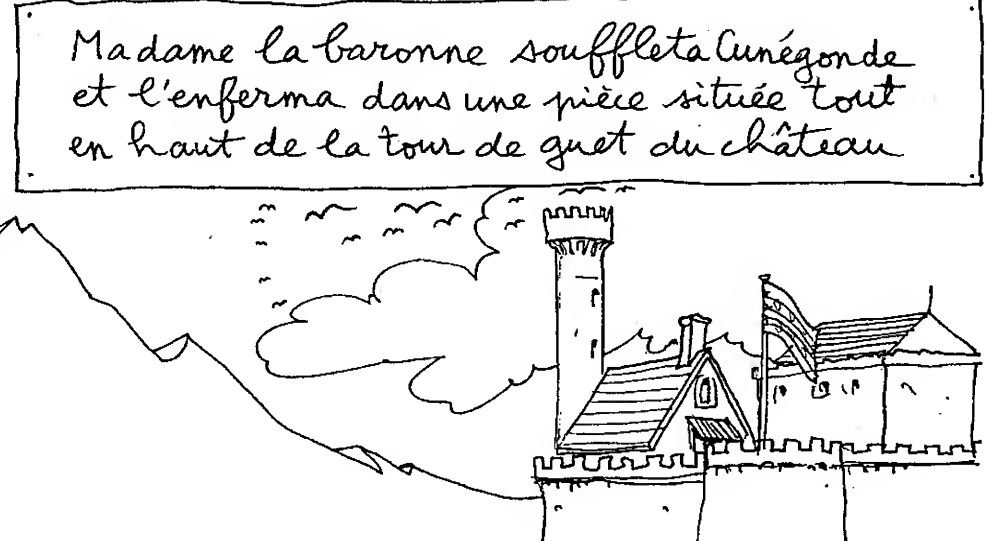 Madame la baronne souffleta Cunégonde
et l'enferma dans une pièce située tout
en haut de la tour de guet du château